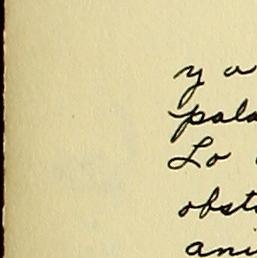 y a
pala
Lo
obst
ani